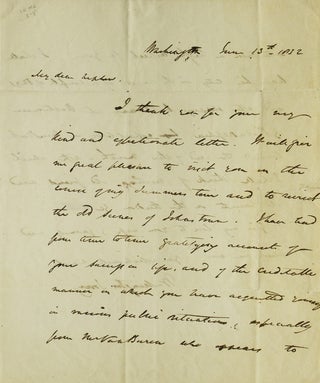 Washington, June 13th 1832
My dear nephew.
I thank you for your very
kind and affectionate letter. It will give
me great pleasure to visit you in the
course of my summers tour and to revisit
the old scenes of Johnstown. I have had
from time to time gratifying accounts of
your success in life, and of the creditable
manner in which you have acquitted yourself
in various public situations, especially
from Mr Van Buren who appears to